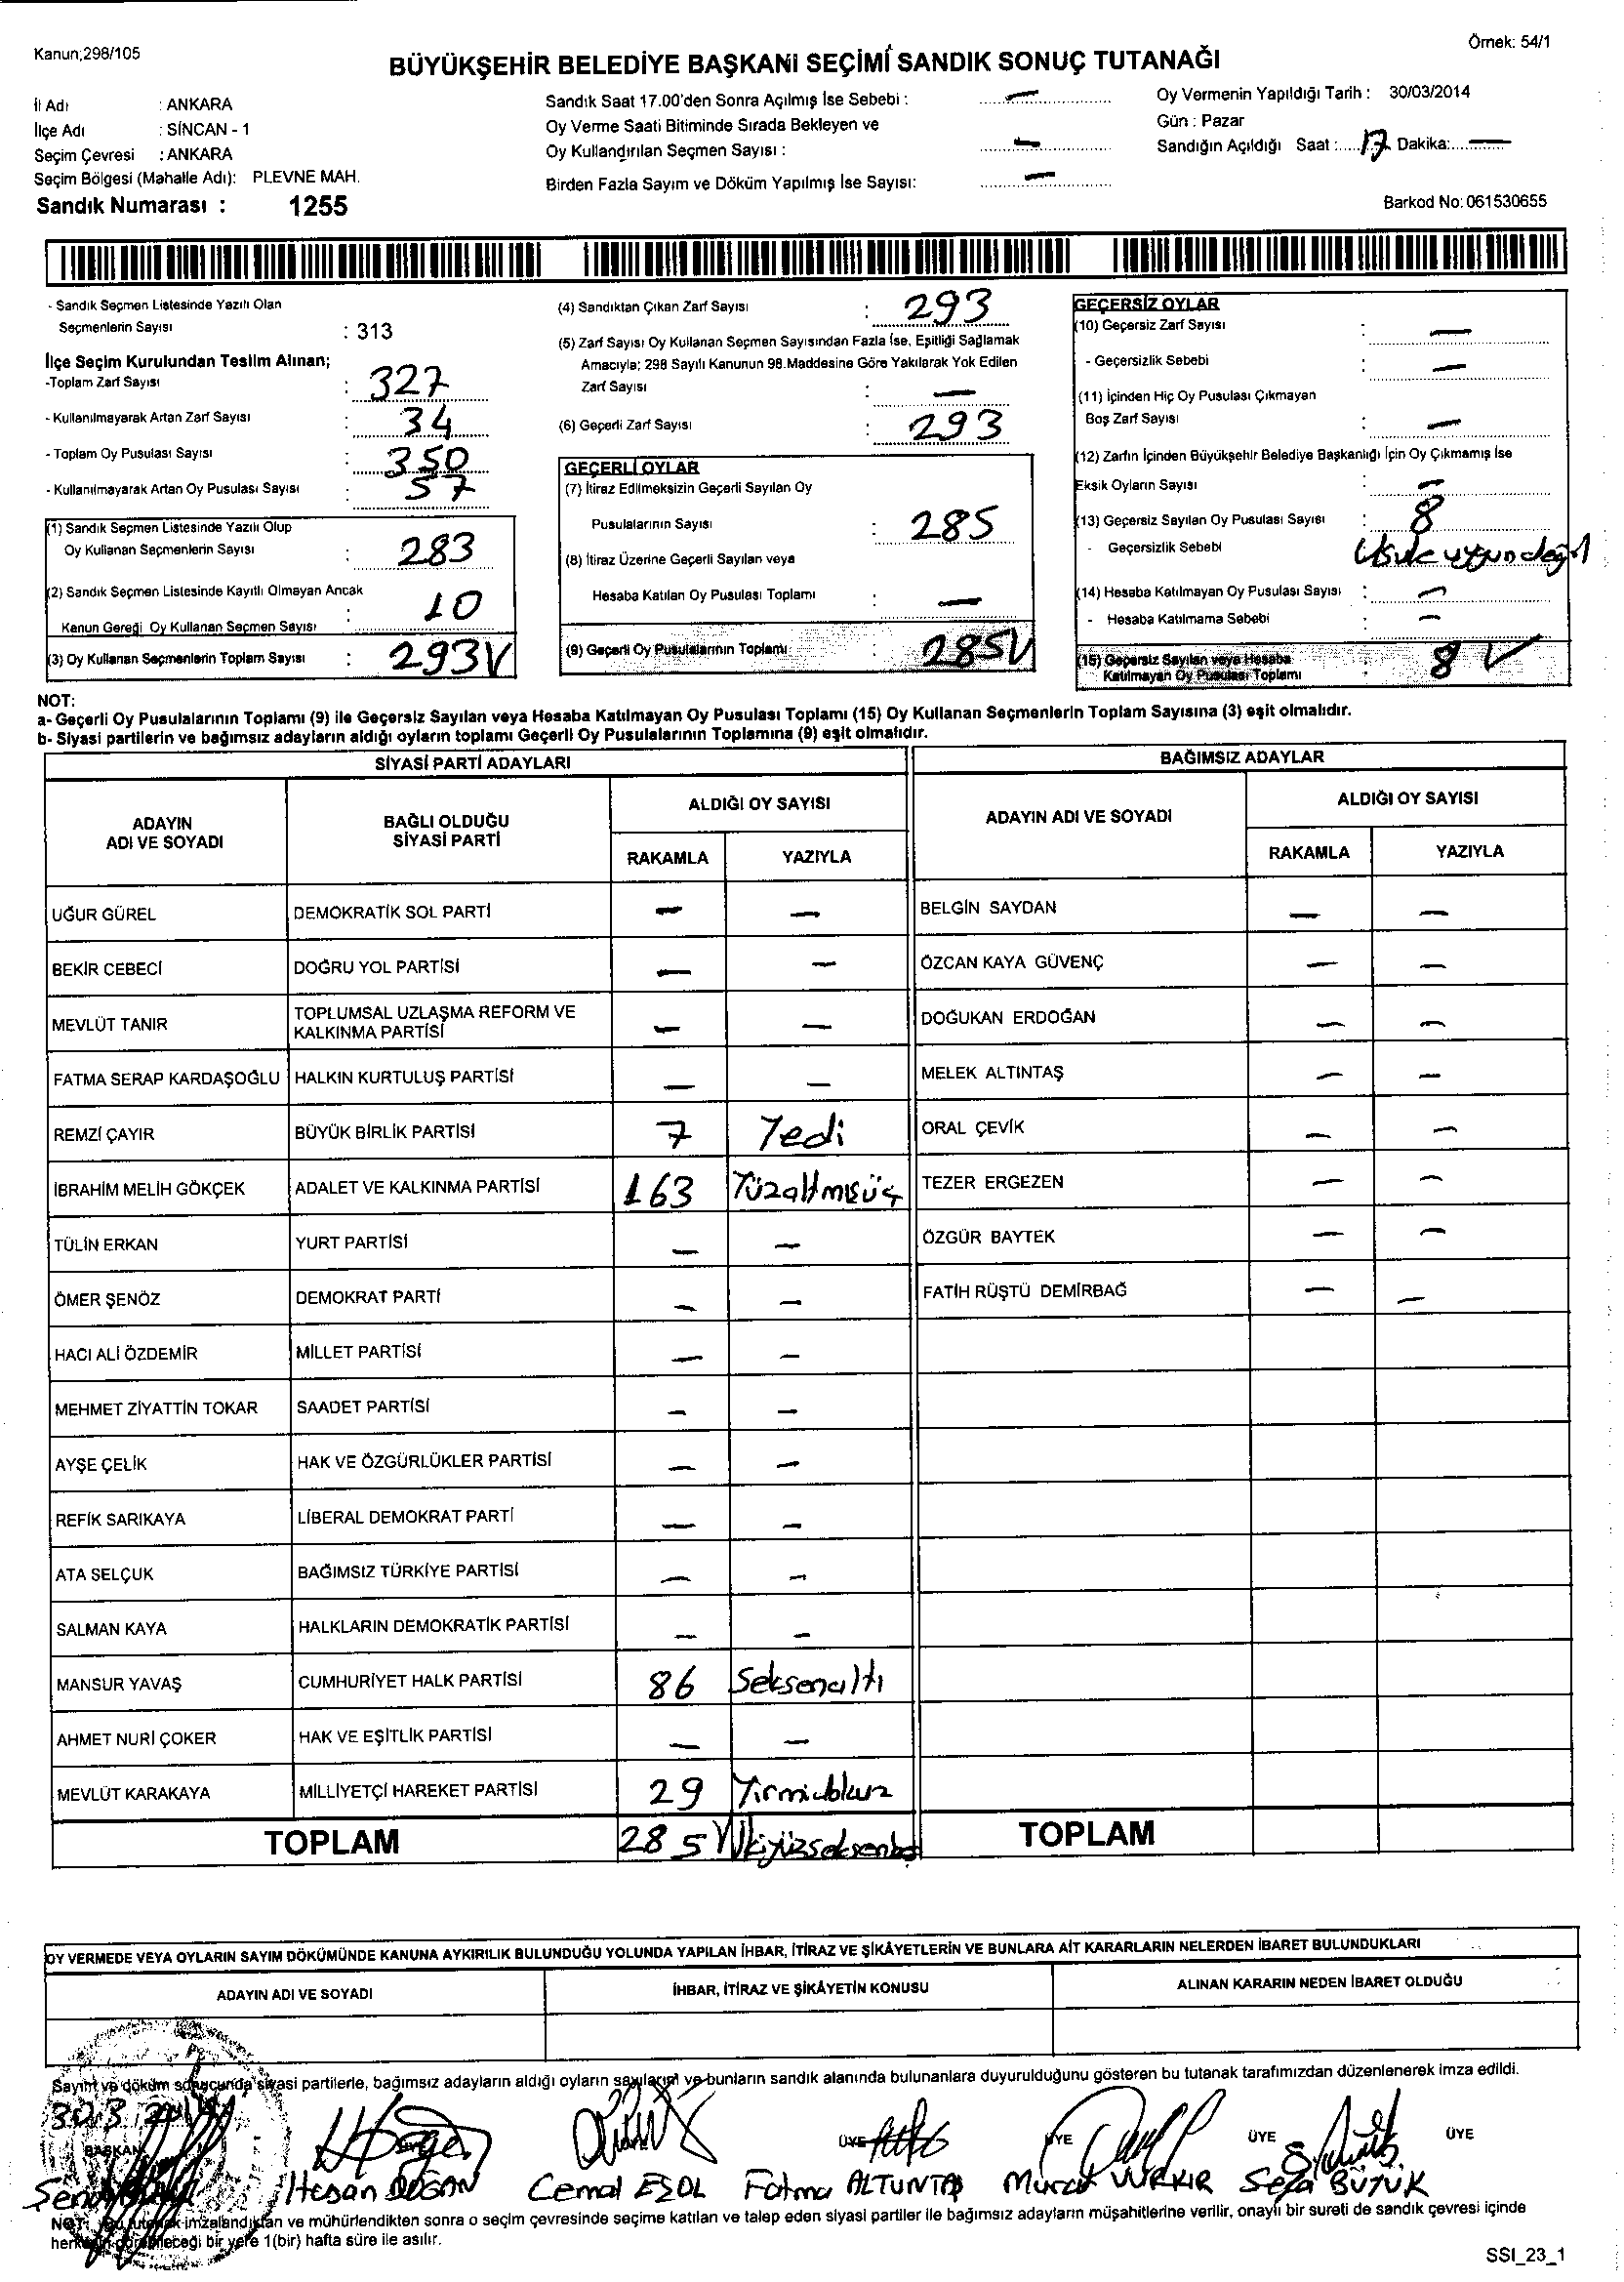 Kanun;298/105
Örnek: 54/1
BÜYÜKŞEHİR BELEDİYE BAŞKANI SEÇİMİ SANDIK SONUÇ TUTANAĞI
İl Adı : ANKARA
İlçe Adı : SİNCAN - 1
Seçim Çevresi : ANKARA
Seçim Bölgesi (Mahalle Adı): PLEVNE MAH.
Sandık Numarası : 1255
Sandık Saat 17.00'den Sonra Açılmış İse Sebebi : —
Oy Verme Saati Bitiminde Sırada Bekleyen ve
Oy Kullandırılan Seçmen Sayısı : —
Birden Fazla Sayım ve Döküm Yapılmış İse Sayısı: —
Oy Vermenin Yapıldığı Tarih : 30/03/2014
Gün : Pazar
Sandığın Açıldığı Saat :.....17 Dakika:....—
Barkod No: 061530655
- Sandık Seçmen Listesinde Yazılı Olan
Seçmenlerin Sayısı : 313
İlçe Seçim Kurulundan Teslim Alınan;
-Toplam Zarf Sayısı : 327
- Kullanılmayarak Artan Zarf Sayısı : 34
- Toplam Oy Pusulası Sayısı : 350
- Kullanılmayarak Artan Oy Pusulası Sayısı : 57
(1) Sandık Seçmen Listesinde Yazılı Olup
Oy Kullanan Seçmenlerin Sayısı : 283
(2) Sandık Seçmen Listesinde Kayıtlı Olmayan Ancak
Kanun Gereği Oy Kullanan Seçmen Sayısı : 10
(3) Oy Kullanan Seçmenlerin Toplam Sayısı : 293 V
(4) Sandıktan Çıkan Zarf Sayısı : 293
(5) Zarf Sayısı Oy Kullanan Seçmen Sayısından Fazla İse, Eşitliği Sağlamak
Amacıyla; 298 Sayılı Kanunun 98.Maddesine Göre Yakılarak Yok Edilen
Zarf Sayısı : —
(6) Geçerli Zarf Sayısı : 293
GEÇERLİ OYLAR
(7) İtiraz Edilmeksizin Geçerli Sayılan Oy
Pusulalarının Sayısı : 285
(8) İtiraz Üzerine Geçerli Sayılan veya
Hesaba Katılan Oy Pusulası Toplamı : —
(9) Geçerli Oy Pusulalarının Toplamı : 285 V
GEÇERSİZ OYLAR
(10) Geçersiz Zarf Sayısı : —
- Geçersizlik Sebebi : —
(11) İçinden Hiç Oy Pusulası Çıkmayan
Boş Zarf Sayısı : —
(12) Zarfın İçinden Büyükşehir Belediye Başkanlığı İçin Oy Çıkmamış İse
Eksik Oyların Sayısı : —
(13) Geçersiz Sayılan Oy Pusulası Sayısı : 8
- Geçersizlik Sebebi Usule uygun değil
(14) Hesaba Katılmayan Oy Pusulası Sayısı : —
- Hesaba Katılmama Sebebi : —
(15) Geçersiz Sayılan veya Hesaba
Katılmayan Oy Pusulası Toplamı : 8 V
NOT:
a- Geçerli Oy Pusulalarının Toplamı (9) ile Geçersiz Sayılan veya Hesaba Katılmayan Oy Pusulası Toplamı (15) Oy Kullanan Seçmenlerin Toplam Sayısına (3) eşit olmalıdır.
b- Siyasi partilerin ve bağımsız adayların aldığı oyların toplamı Geçerli Oy Pusulalarının Toplamına (9) eşit olmalıdır.
SİYASİ PARTİ ADAYLARI
BAĞIMSIZ ADAYLAR
ADAYIN
ADI VE SOYADI
BAĞLI OLDUĞU
SİYASİ PARTİ
ALDIĞI OY SAYISI
RAKAMLA YAZIYLA
ADAYIN ADI VE SOYADI
ALDIĞI OY SAYISI
RAKAMLA YAZIYLA
UĞUR GÜREL DEMOKRATİK SOL PARTİ — — BELGİN SAYDAN — —
BEKİR CEBECİ DOĞRU YOL PARTİSİ — — ÖZCAN KAYA GÜVENÇ — —
MEVLÜT TANIR TOPLUMSAL UZLAŞMA REFORM VE
KALKINMA PARTİSİ — — DOĞUKAN ERDOĞAN — —
FATMA SERAP KARDAŞOĞLU HALKIN KURTULUŞ PARTİSİ — — MELEK ALTINTAŞ — —
REMZİ ÇAYIR BÜYÜK BİRLİK PARTİSİ 7 Yedi ORAL ÇEVİK — —
İBRAHİM MELİH GÖKÇEK ADALET VE KALKINMA PARTİSİ 163 Yüzaltmışüç TEZER ERGEZEN — —
TÜLİN ERKAN YURT PARTİSİ — — ÖZGÜR BAYTEK — —
ÖMER ŞENÖZ DEMOKRAT PARTİ — — FATİH RÜŞTÜ DEMİRBAĞ — —
HACI ALİ ÖZDEMİR MİLLET PARTİSİ — —
MEHMET ZİYATTİN TOKAR SAADET PARTİSİ — —
AYŞE ÇELİK HAK VE ÖZGÜRLÜKLER PARTİSİ — —
REFİK SARIKAYA LİBERAL DEMOKRAT PARTİ — —
ATA SELÇUK BAĞIMSIZ TÜRKİYE PARTİSİ — —
SALMAN KAYA HALKLARIN DEMOKRATİK PARTİSİ — —
MANSUR YAVAŞ CUMHURİYET HALK PARTİSİ 86 Seksenaltı
AHMET NURİ ÇOKER HAK VE EŞİTLİK PARTİSİ — —
MEVLÜT KARAKAYA MİLLİYETÇİ HAREKET PARTİSİ 29 Yirmidokuz
TOPLAM 285 V İkiyüzseksenbeş TOPLAM
OY VERMEDE VEYA OYLARIN SAYIM DÖKÜMÜNDE KANUNA AYKIRILIK BULUNDUĞU YOLUNDA YAPILAN İHBAR, İTİRAZ VE ŞİKÂYETLERİN VE BUNLARA AİT KARARLARIN NELERDEN İBARET BULUNDUKLARI
ADAYIN ADI VE SOYADI İHBAR, İTİRAZ VE ŞİKÂYETİN KONUSU ALINAN KARARIN NEDEN İBARET OLDUĞU
Sayım ve döküm sonucunda siyasi partilerle, bağımsız adayların aldığı oyların sayılarını ve bunların sandık alanında bulunanlara duyurulduğunu gösteren bu tutanak tarafımızdan düzenlenerek imza edildi.
30.3.2014
BAŞKAN ÜYE ÜYE ÜYE ÜYE
Hasan DOĞAN Cemal EŞOL Fatma ALTUNTAŞ Murat Sefa BÜYÜK
NOT: Bu tutanak imzalandıktan ve mühürlendikten sonra o seçim çevresinde seçime katılan ve talep eden siyasi partiler ile bağımsız adayların müşahitlerine verilir, onaylı bir sureti de sandık çevresi içinde
herkesin görebileceği bir yere 1(bir) hafta süre ile asılır.
SSI_23_1